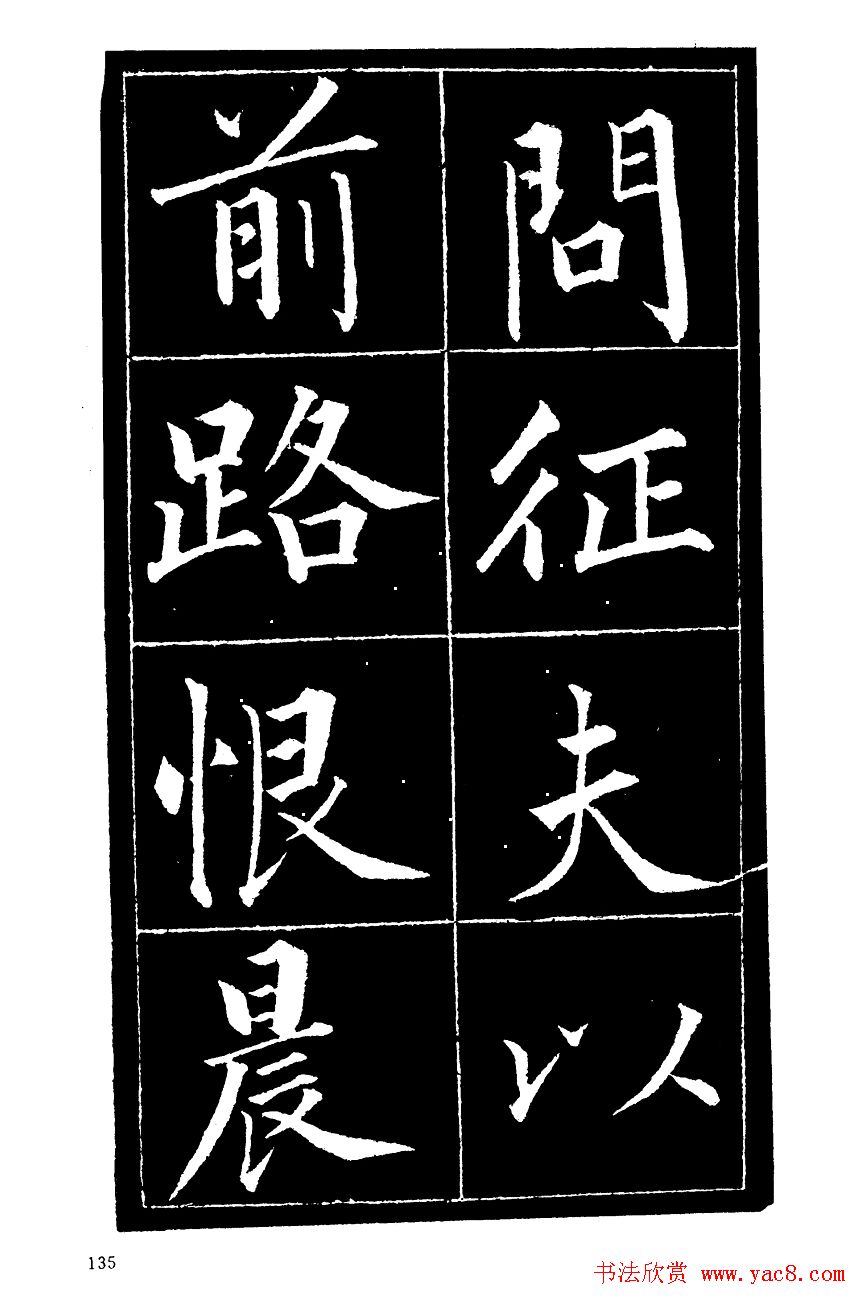 問征夫以
前路恨晨
135
书法欣赏 www.yac8.com